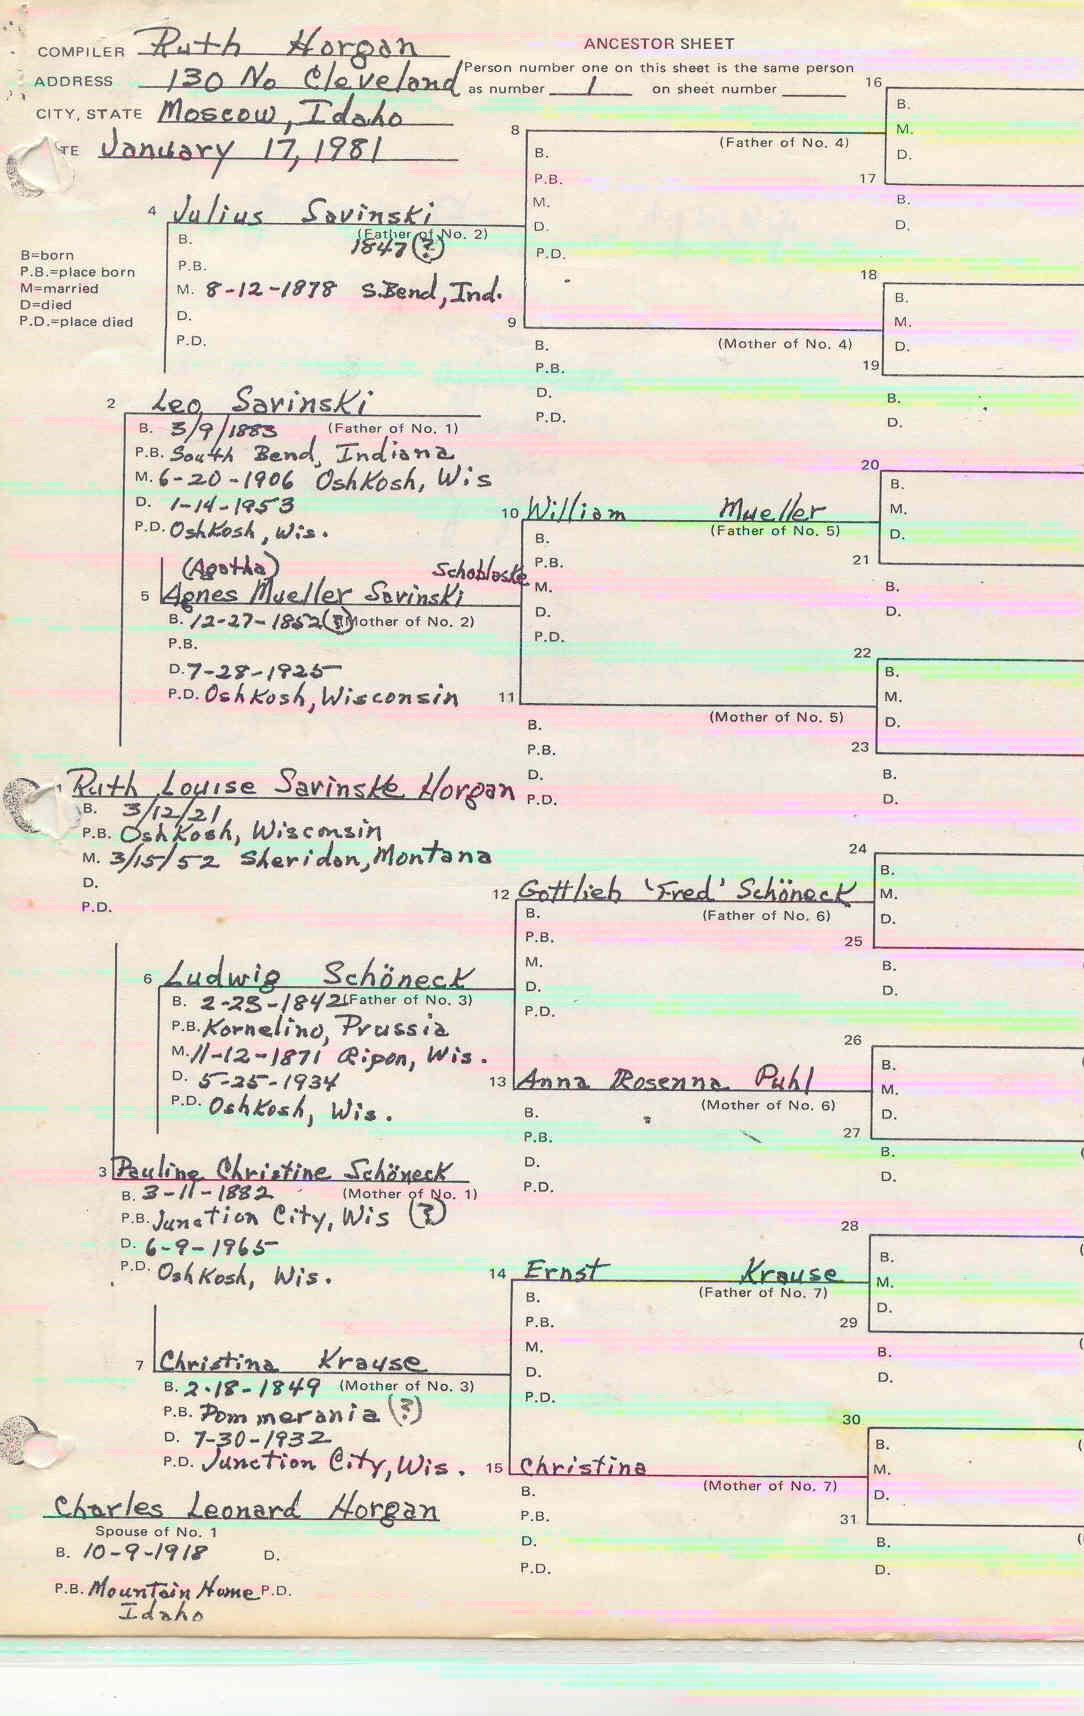 COMPILER Ruth Horgan
ANCESTOR SHEET
ADDRESS 130 No Cleveland
Person number one on this sheet is the same person
as number 1 on sheet number
CITY, STATE Moscow, Idaho
TE January 17, 1981
B=born
P.B.=place born
M=married
D=died
P.D.=place died
4 Julius Savinski
(Father of No. 2)
B. 1847 (?)
P.B.
M. 8-12-1878 S.Bend, Ind.
D.
P.D.
2 Leo Savinski
B. 3/9/1883 (Father of No. 1)
P.B. South Bend, Indiana
M. 6-20-1906 Oshkosh, Wis
D. 1-14-1953
P.D. Oshkosh, Wis.
(Agatha) Schoblaske
5 Agnes Mueller Savinski
B. 12-27-1852(?) (Mother of No. 2)
P.B.
D. 7-28-1925
P.D. Oshkosh, Wisconsin
Ruth Louise Savinske Horgan
B. 3/12/21
P.B. Oshkosh, Wisconsin
M. 3/15/52 Sheridan, Montana
D.
P.D.
6 Ludwig Schöneck
B. 2-23-1842 (Father of No. 3)
P.B. Kornelino, Prussia
M. 11-12-1871 Ripon, Wis.
D. 5-25-1934
P.D. Oshkosh, Wis.
3 Pauline Christine Schöneck
B. 3-11-1882 (Mother of No. 1)
P.B. Junction City, Wis (?)
D. 6-9-1965
P.D. Oshkosh, Wis.
7 Christina Krause
B. 2-18-1849 (Mother of No. 3)
P.B. Pommerania (?)
D. 7-30-1932
P.D. Junction City, Wis.
Charles Leonard Horgan
Spouse of No. 1
B. 10-9-1918 D.
P.B. Mountain Home P.D.
Idaho
8
(Father of No. 4)
B.
P.B.
M.
D.
P.D.
9
(Mother of No. 4)
B.
P.B.
D.
P.D.
10 William Mueller
(Father of No. 5)
B.
P.B.
M.
D.
P.D.
11
(Mother of No. 5)
B.
P.B.
D.
P.D.
12 Gottlieb 'Fred' Schöneck
B. (Father of No. 6)
P.B.
M.
D.
P.D.
13 Anna Rosenna Puhl
(Mother of No. 6)
B.
P.B.
D.
P.D.
14 Ernst Krause
B. (Father of No. 7)
P.B.
M.
D.
P.D.
15 Christina
(Mother of No. 7)
B.
P.B.
D.
P.D.
16
B.
M.
D.
17
B.
D.
18
B.
M.
D.
19
B.
D.
20
B.
M.
D.
21
B.
D.
22
B.
M.
D.
23
B.
D.
24
B.
M.
D.
25
B.
D.
26
B.
M.
D.
27
B.
D.
28
B.
M.
D.
29
B.
D.
30
B.
M.
D.
31
B.
D.